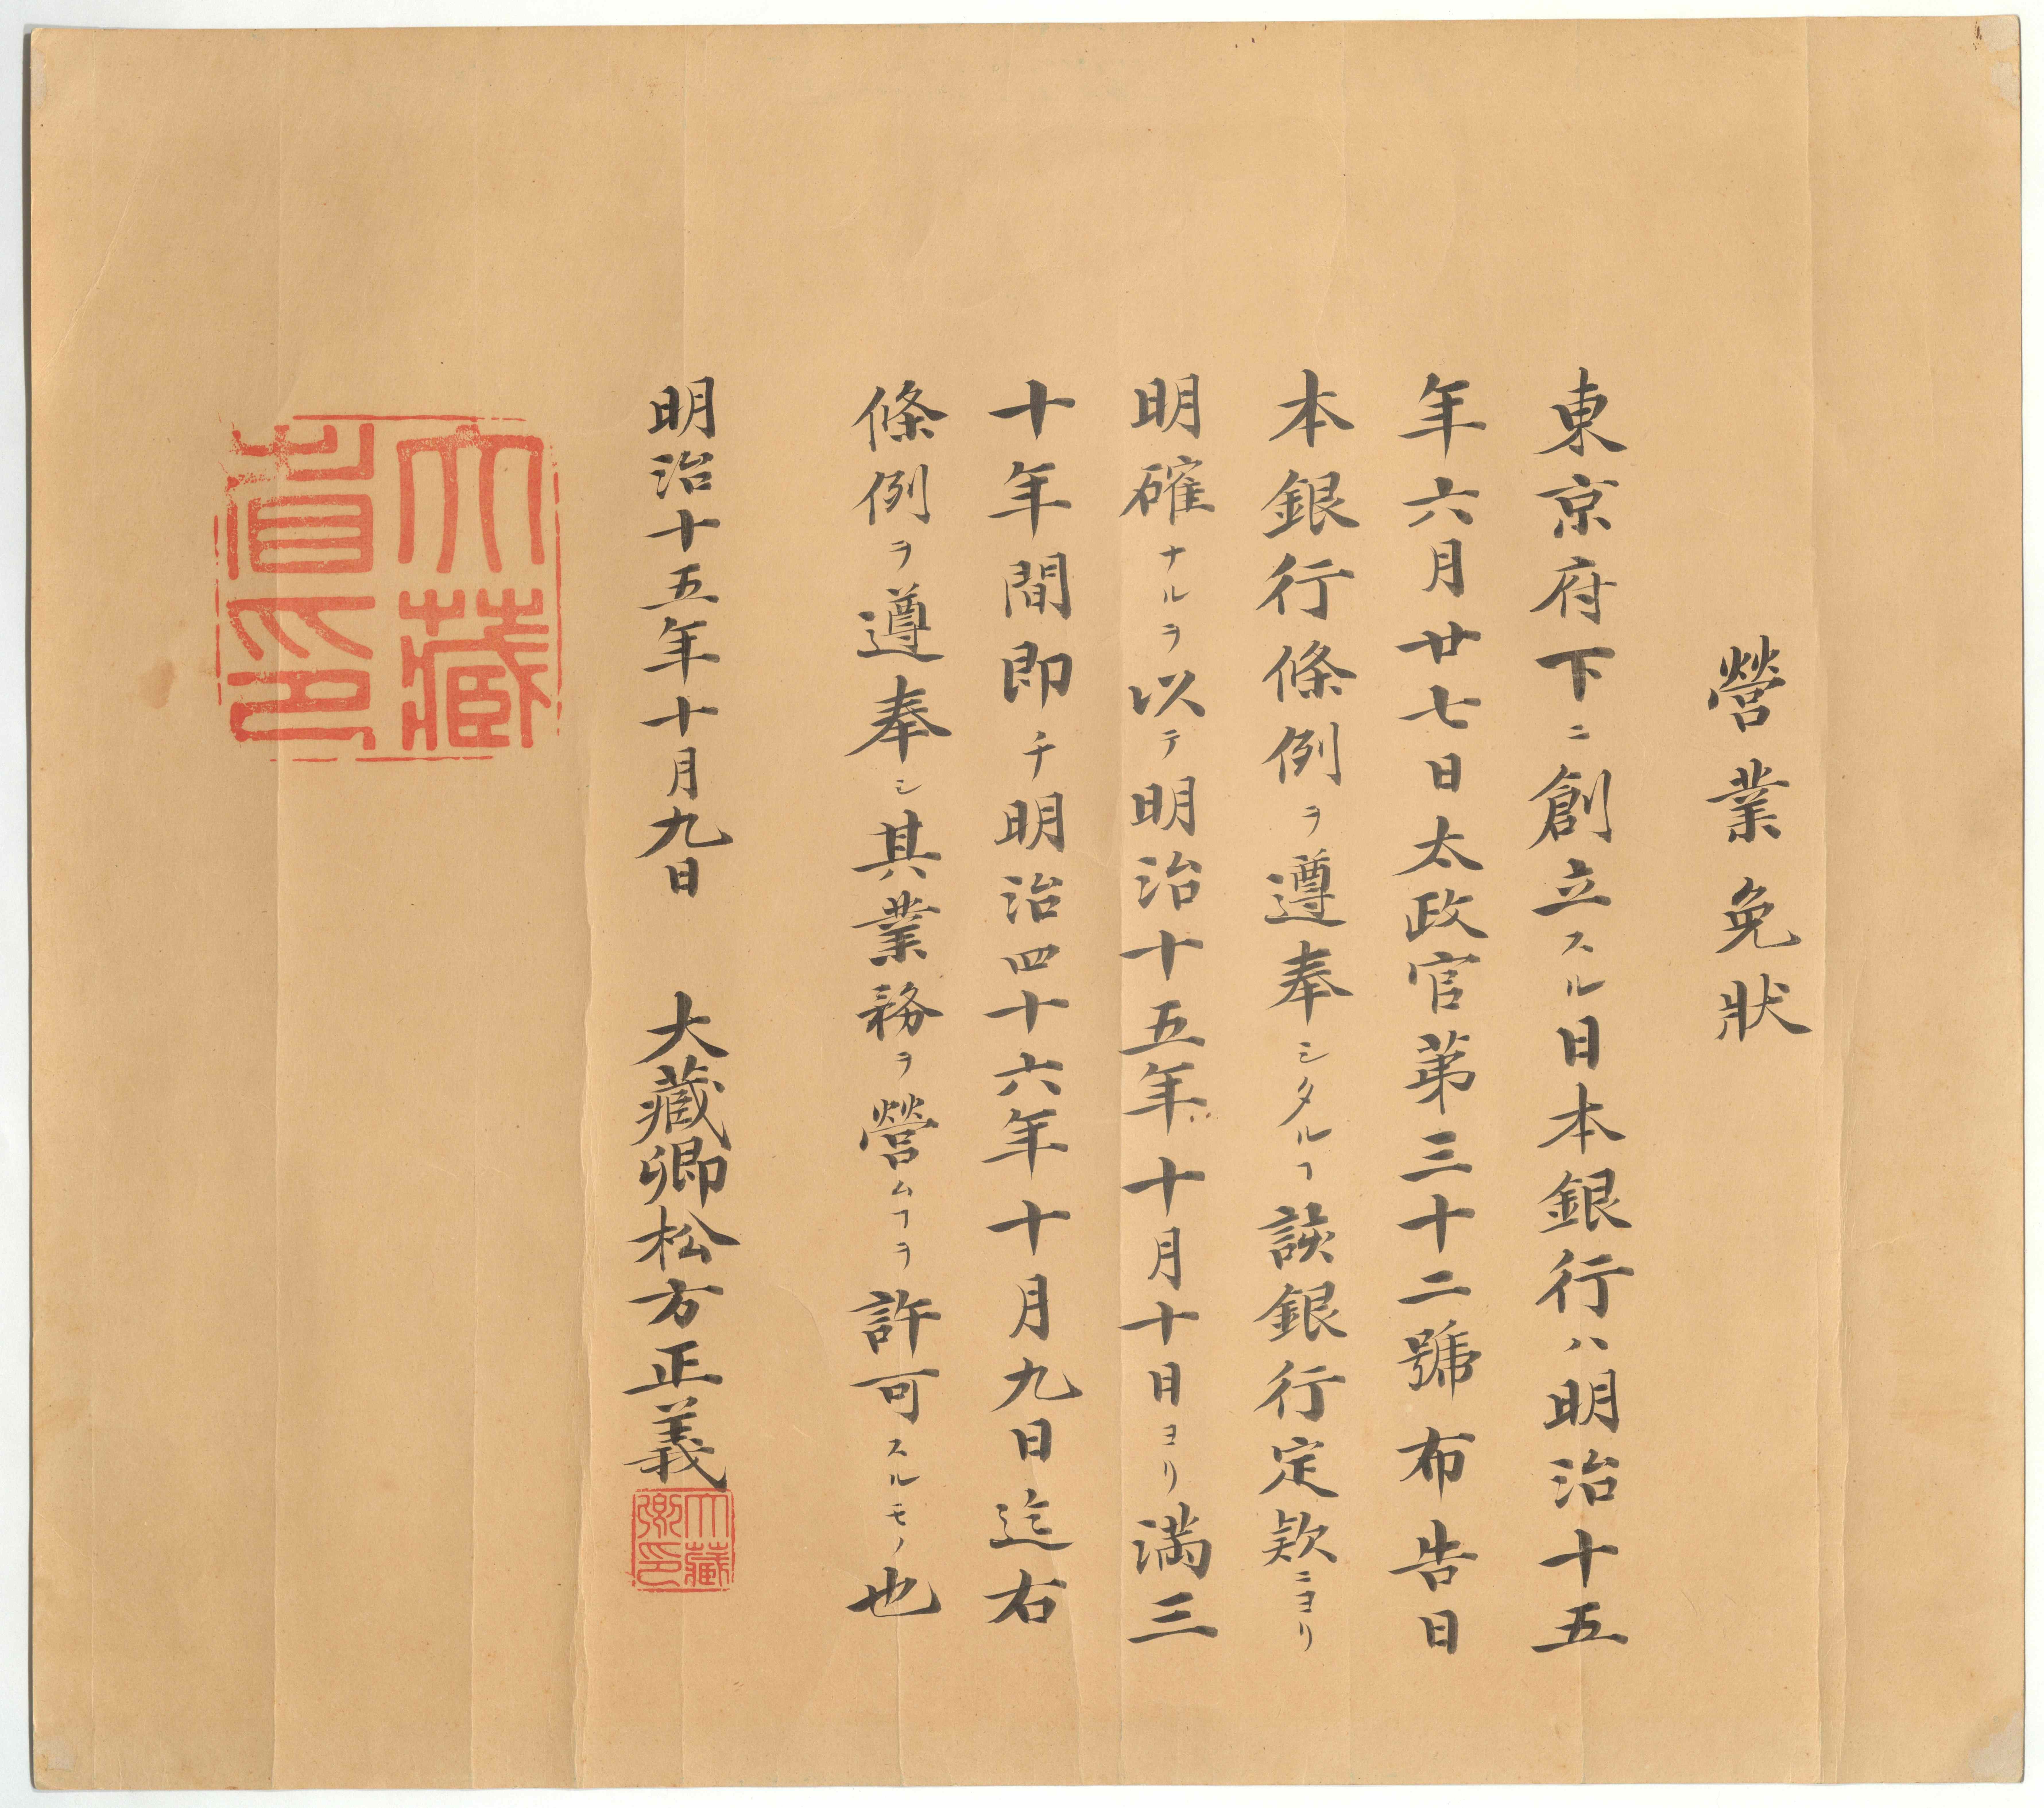 營業免狀
東京府下ニ創立スル日本銀行ハ明治十五
年六月廿七日太政官第三十二號布告日
本銀行條例ヲ遵奉シタルヿ該銀行定欵ニヨリ
明確ナルヲ以テ明治十五年十月十日ヨリ満三
十年間即チ明治四十六年十月九日迄右
條例ヲ遵奉シ其業務ヲ營ムヿヲ許可スルモノ也
明治十五年十月九日 大藏卿松方正義
大藏卿印
大藏省印